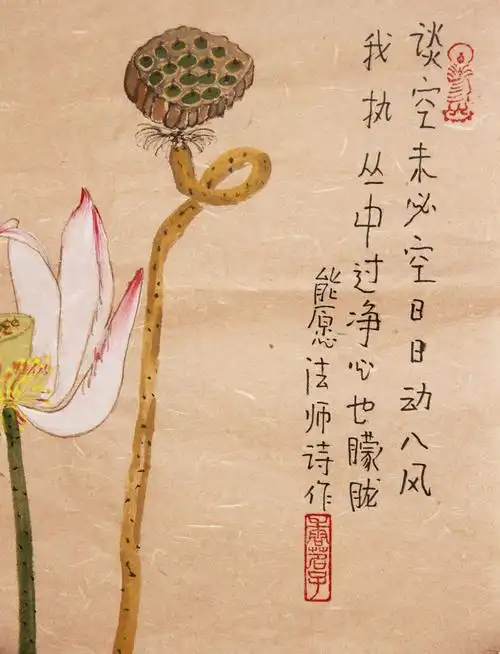 谈空未必空日日动八风
我执丛中过净心也朦胧
能愿法师诗作